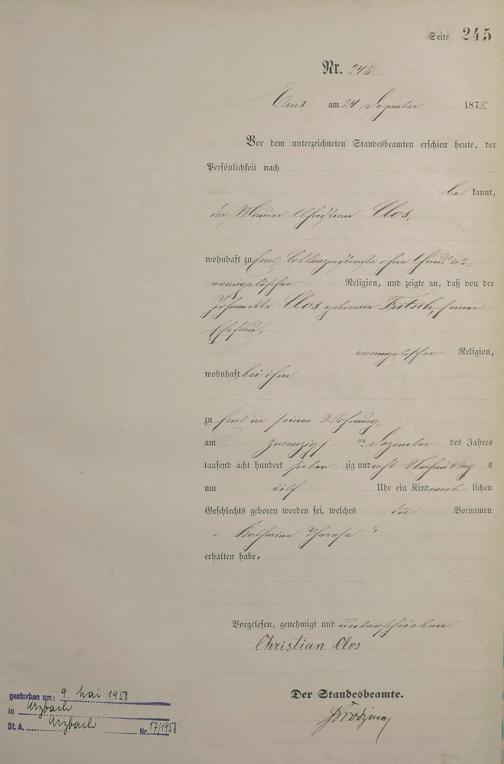 Seite 245
Nr. 245
Ems am 24 Dezember 1878.
Vor dem unterzeichneten Standesbeamten erschien heute, der
Persönlichkeit nach
be kannt,
der Maurer Christian Clos,
wohnhaft zu Ems, Coblenzerstraße
evangelischer Religion, und zeigte an, daß von der
Clos geborene Fritsch, seiner
Ehefrau,
evangelischer Religion,
wohnhaft bei ihm
zu Ems in seiner Wohnung,
am zwanzigsten Dezember des Jahres
tausend acht hundert sieben zig und acht
um Uhr ein Kind weib lichen
Geschlechts geboren worden sei, welches die Vornamen
Katharine
erhalten habe.
Vorgelesen, genehmigt und unterschrieben
Christian Clos
Der Standesbeamte.
gestorben am: 9. Mai 1958
in Arzbach
St. A. Arzbach Nr. 17/1958